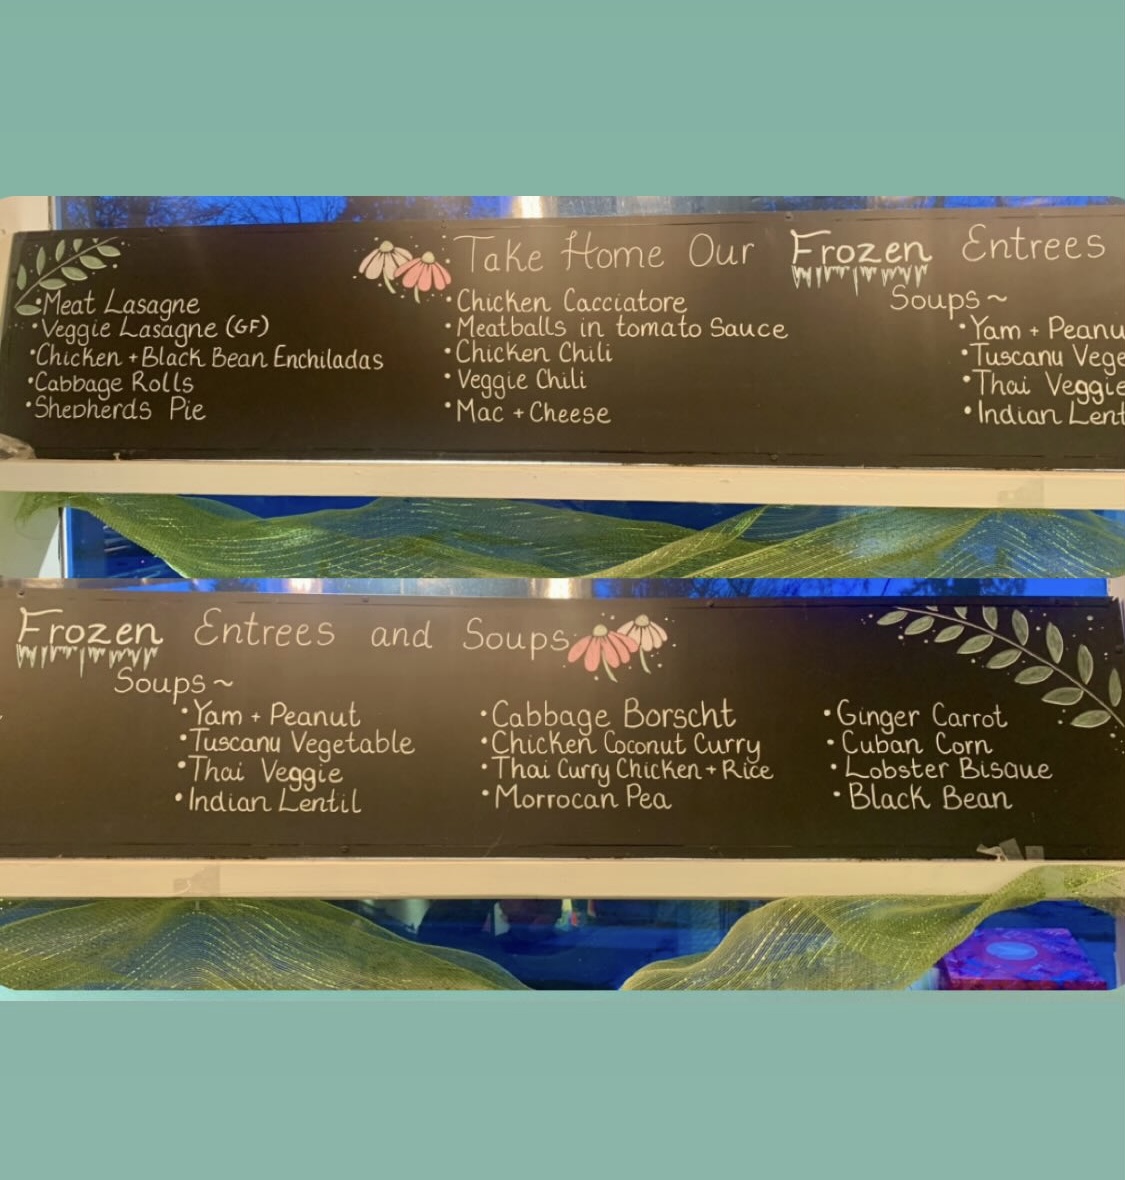 Take Home Our Frozen Entrees
•Meat Lasagne
•Veggie Lasagne (GF)
•Chicken + Black Bean Enchiladas
•Cabbage Rolls
•Shepherds Pie
•Chicken Cacciatore
•Meatballs in tomato Sauce
•Chicken Chili
•Veggie Chili
•Mac + Cheese
Soups ~
•Yam + Peanu
•Tuscanu Vege
•Thai Veggie
•Indian Lent
Frozen Entrees and Soups
Soups ~
•Yam + Peanut
•Tuscanu Vegetable
•Thai Veggie
•Indian Lentil
•Cabbage Borscht
•Chicken Coconut Curry
•Thai Curry Chicken + Rice
•Morrocan Pea
•Ginger Carrot
•Cuban Corn
•Lobster Bisque
•Black Bean